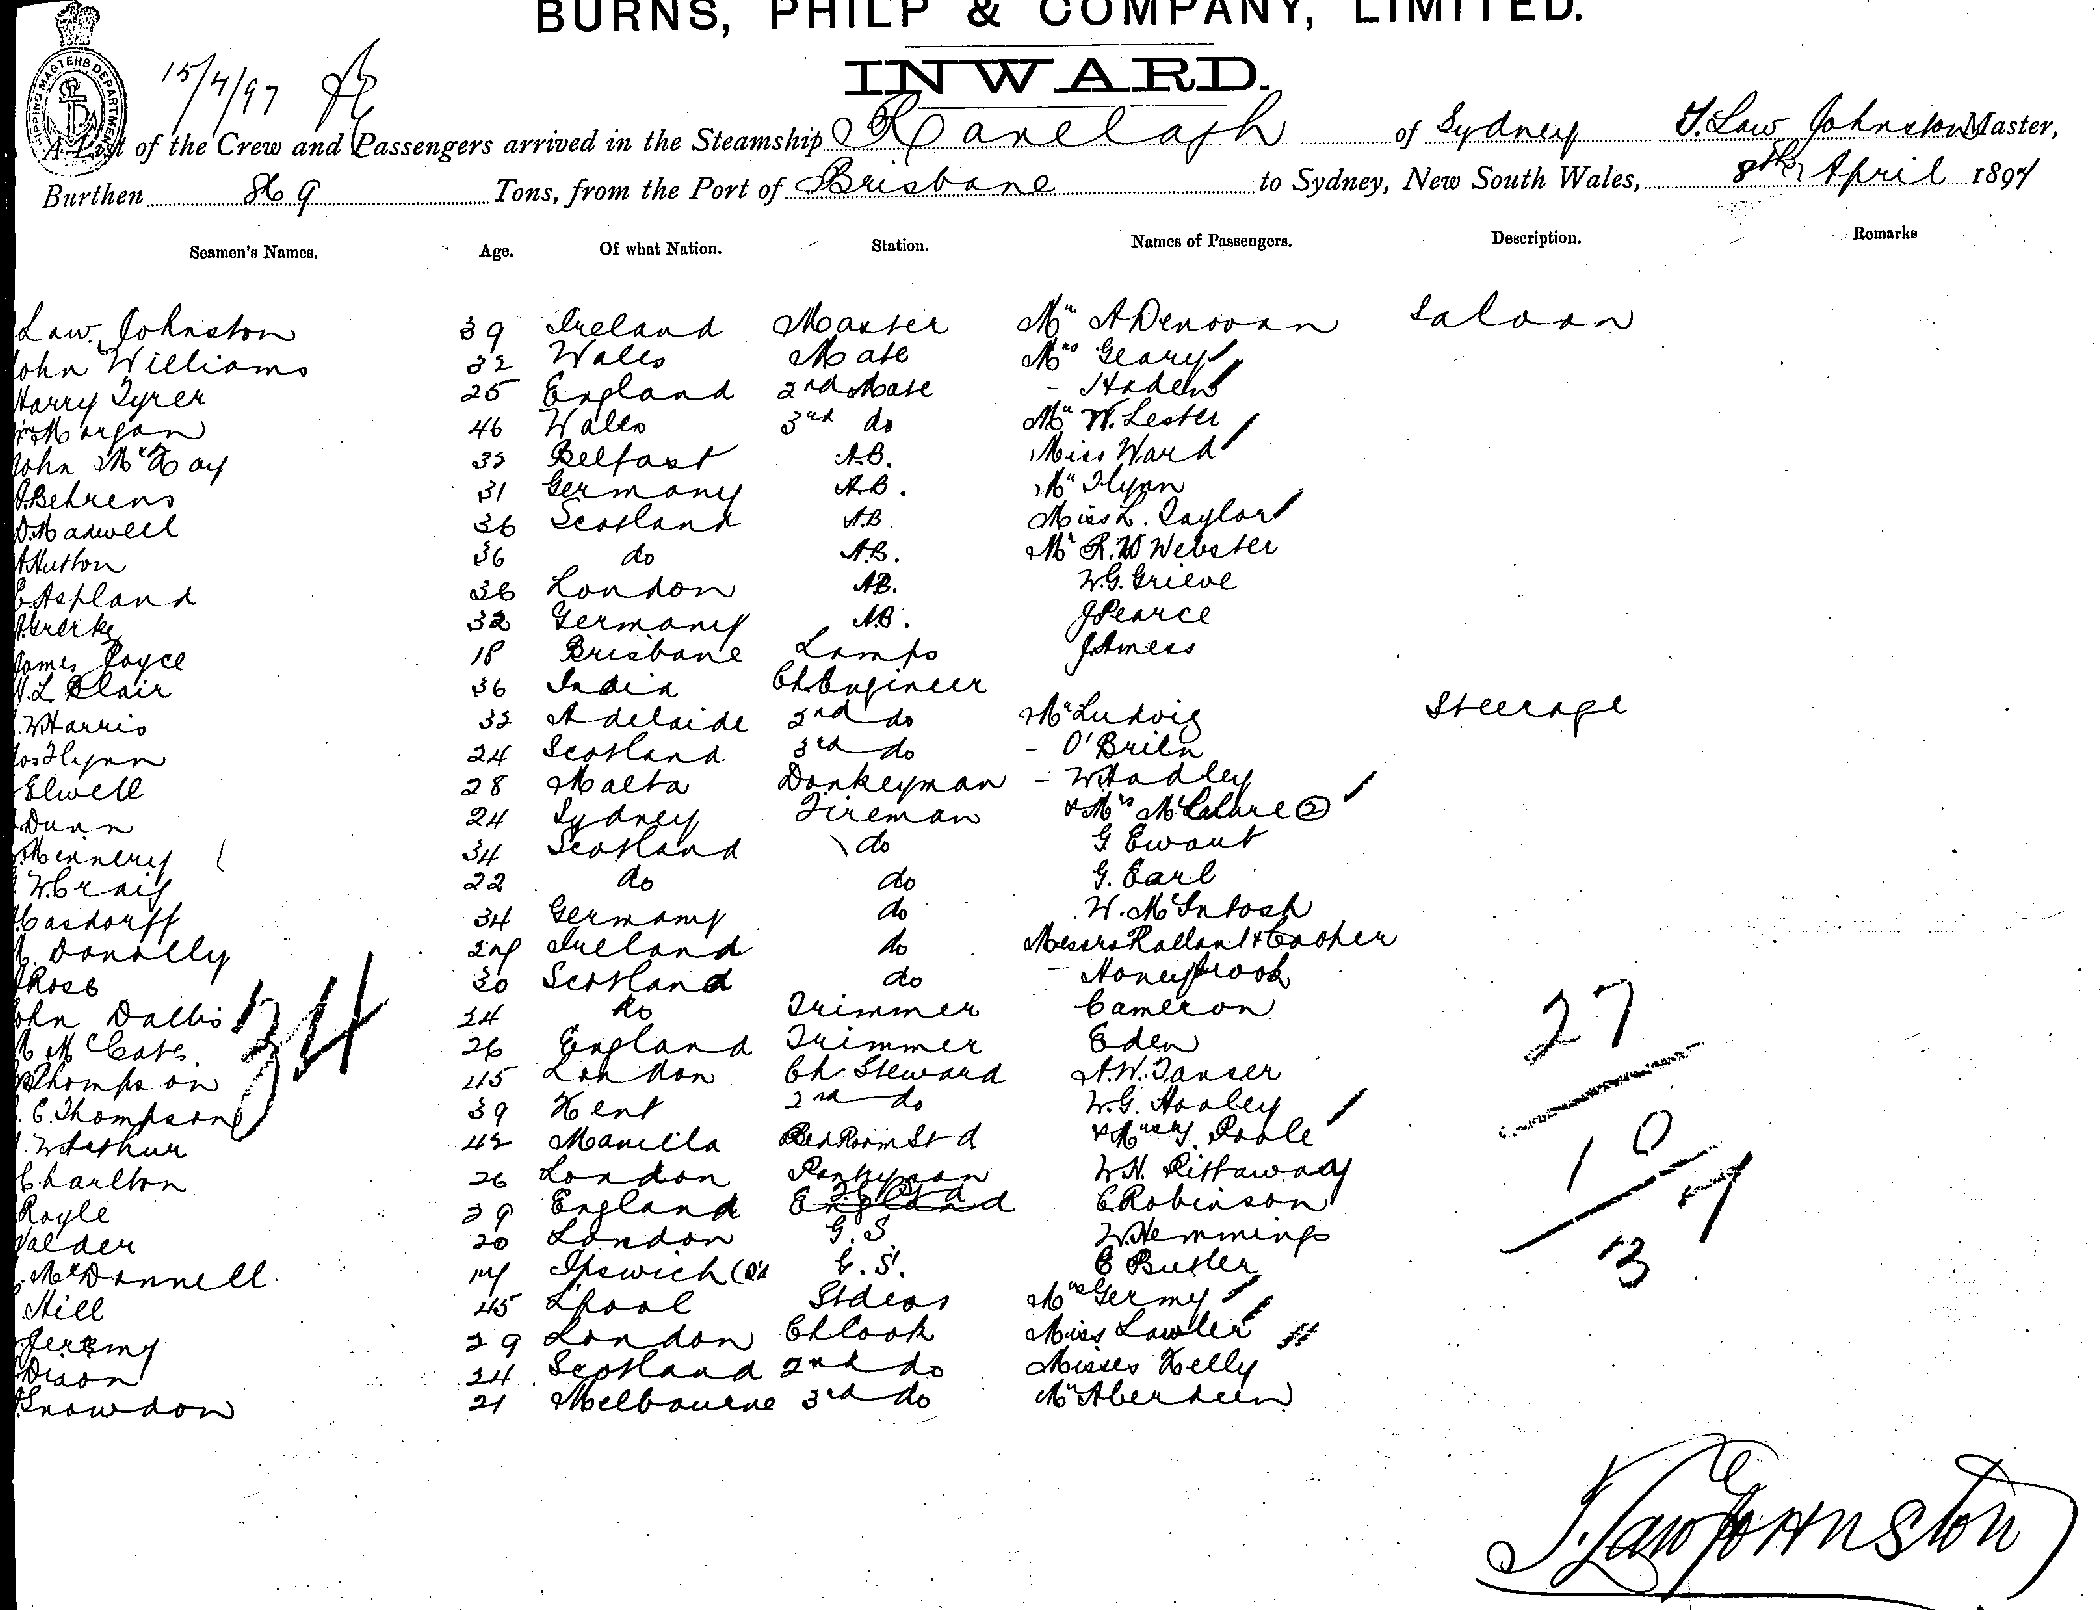 BURNS, PHILP & COMPANY, LIMITED.
INWARD.
15/4/97
A List of the Crew and Passengers arrived in the Steamship Ranelagh of Sydney T. Law Johnston Master,
Burthen 869 Tons, from the Port of Brisbane to Sydney, New South Wales, 8th April 1897
Seamen's Names. Age. Of what Nation. Station. Names of Passengers. Description. Remarks
Law Johnston 39 Ireland Master Mr A Denovan Saloon
John Williams 32 Wales Mate Mrs Geary
Harry Tyrer 25 England 2nd Mate - Haden
Wm Morgan 46 Wales 3rd do Mr W. Lester
John McKay 32 Belfast A.B. Miss Ward
Behrens 31 Germany A.B. Mr Flynn
Maxwell 36 Scotland AB Miss L. Taylor
Hutton 36 do A.B. Mr R.W Webster
E Aspland 36 London AB. W.G. Grieve
32 Germany AB. J Pearce
James Joyce 18 Brisbane Lamps J Amess
L Blair 36 India Ch Engineer
W Harris 32 Adelaide 2nd do Mr Ludvig Steerage
Jos Flynn 24 Scotland 3rd do - O'Brien
Elwell 28 Malta Donkeyman - W Hadley
Dunn 24 Sydney Fireman & Mrs McClure 2
Mennery 34 Scotland do G Ewart
W Craig 22 do do G. Earl
Casdorff 34 Germany do W. McIntosh
Donolly 27 Ireland do Messrs Rallant & Cooper
Ross 30 Scotland do - Honeybrook
John Dallis 24 do Trimmer Cameron
26 England Trimmer Eden
Thompson 45 London Ch Steward A.W. Tanser
C. Thompson 39 Kent 2nd do W.G. Hooley
W Arthur 42 Manilla Bed Room Std & Poole
Charlton 26 London Pantryman W.H. Pittaway
Royle 29 England England C Robinson
20 London G.S. W. Hemmings
McDonnell 17 Ipswich G.S. E Butler
Hill 45 L'pool Stdess Mrs Germy
Jeremy 29 London Ch Cook Miss Lawler
Dixon 24 Scotland 2nd do Misses Kelly
Snowdon 21 Melbourne 3rd do Mr Aberdeen
34
27
10
37
T. Law Johnston